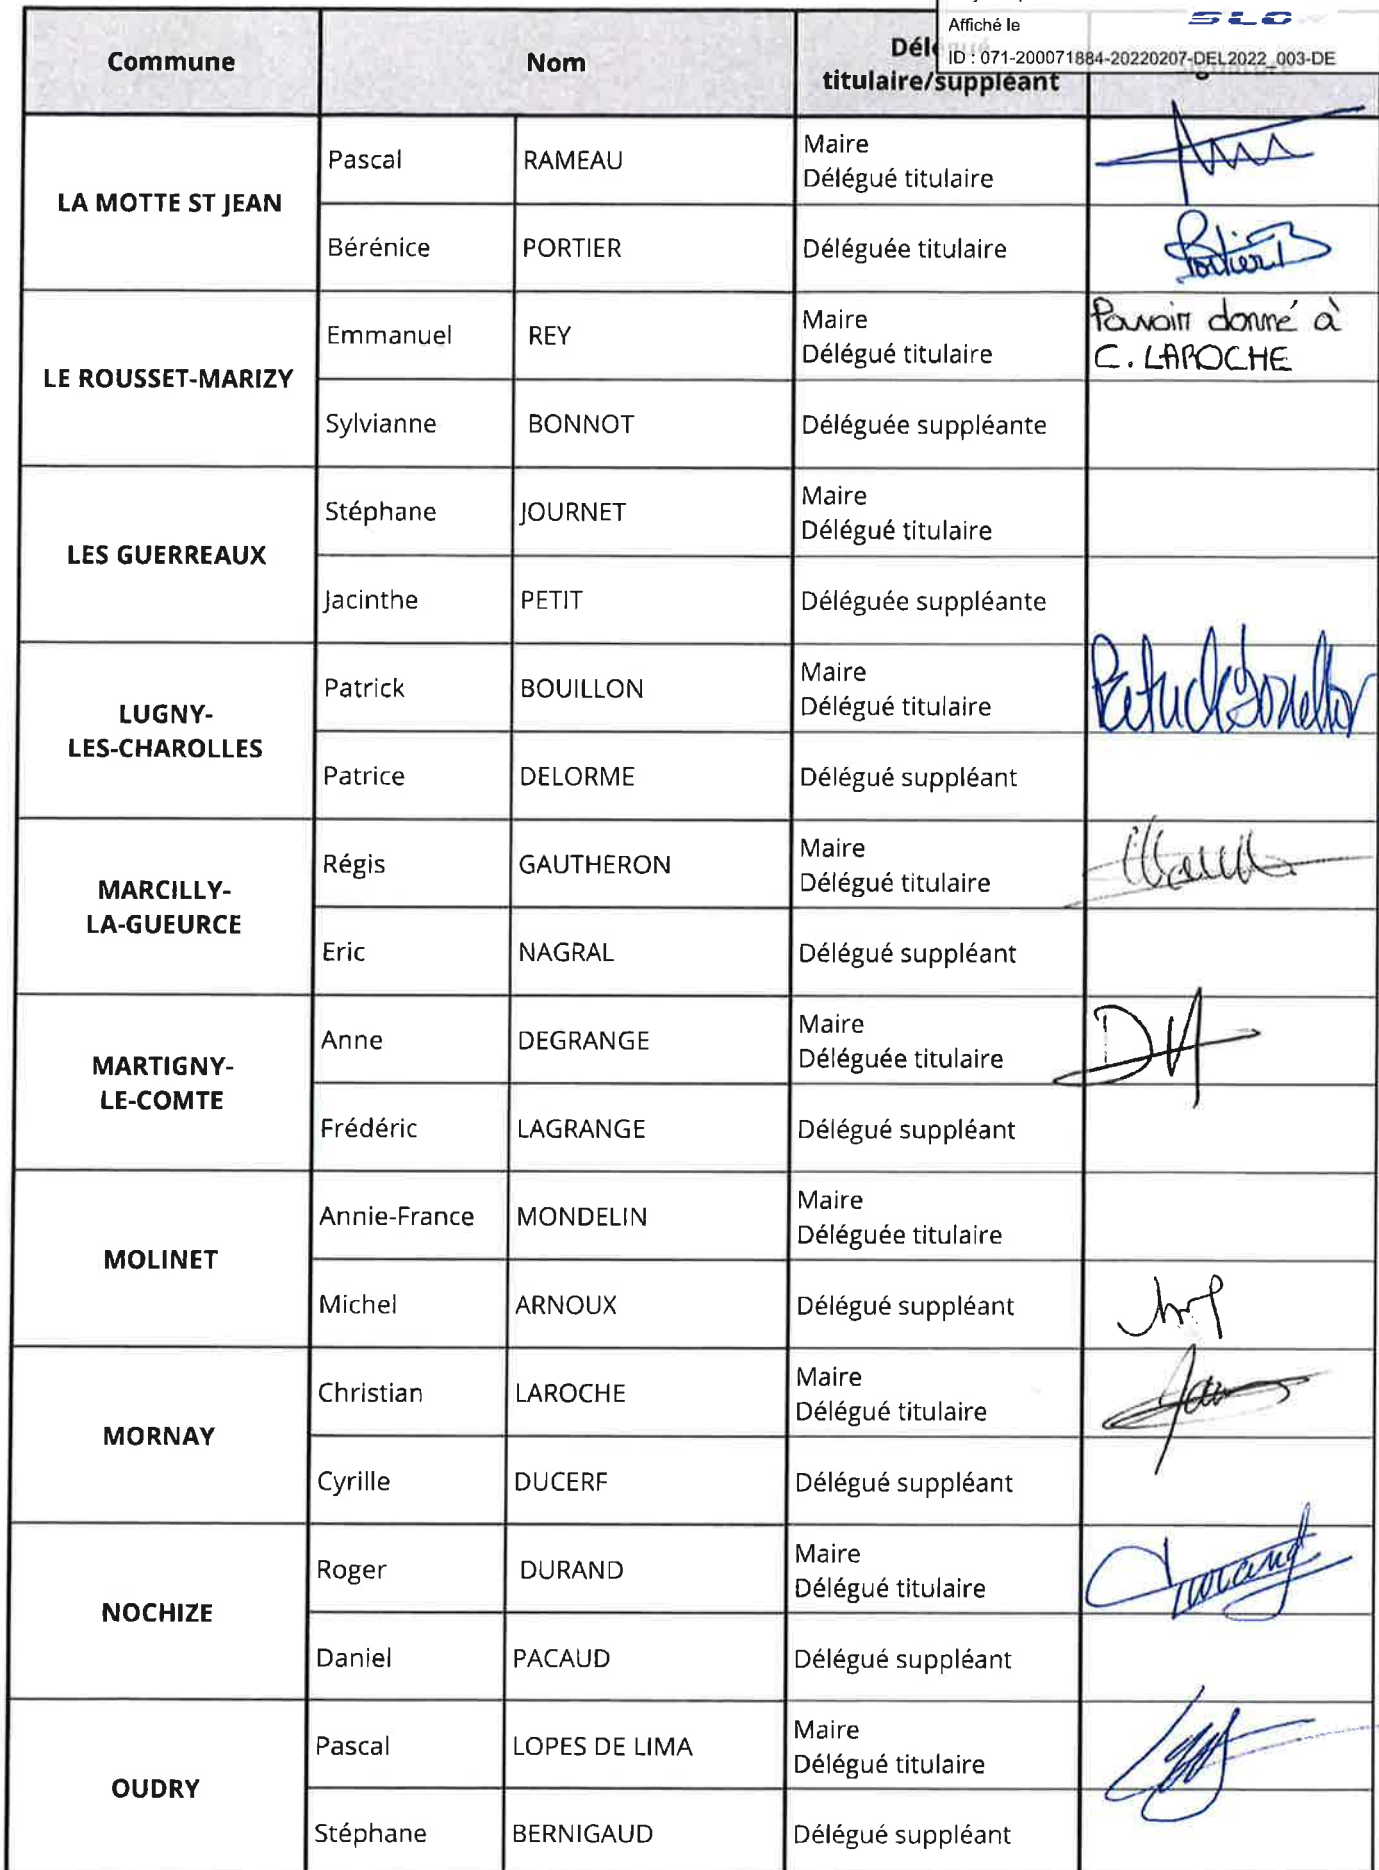 Affiché le
SLO
ID : 071-200071884-20220207-DEL2022_003-DE
Commune Nom
titulaire/suppléant
LA MOTTE ST JEAN
Pascal RAMEAU Maire
Délégué titulaire
Bérénice PORTIER Déléguée titulaire Portier
LE ROUSSET-MARIZY
Emmanuel REY Maire
Délégué titulaire
Pouvoir donné à
C. LAROCHE
Sylvianne BONNOT Déléguée suppléante
LES GUERREAUX
Stéphane JOURNET Maire
Délégué titulaire
Jacinthe PETIT Déléguée suppléante
LUGNY-
LES-CHAROLLES
Patrick BOUILLON Maire
Délégué titulaire
Patrice DELORME Délégué suppléant
MARCILLY-
LA-GUEURCE
Régis GAUTHERON Maire
Délégué titulaire
Eric NAGRAL Délégué suppléant
MARTIGNY-
LE-COMTE
Anne DEGRANGE Maire
Déléguée titulaire
Frédéric LAGRANGE Délégué suppléant
MOLINET
Annie-France MONDELIN Maire
Déléguée titulaire
Michel ARNOUX Délégué suppléant
MORNAY
Christian LAROCHE Maire
Délégué titulaire
Cyrille DUCERF Délégué suppléant
NOCHIZE
Roger DURAND Maire
Délégué titulaire
Daniel PACAUD Délégué suppléant
OUDRY
Pascal LOPES DE LIMA Maire
Délégué titulaire
Stéphane BERNIGAUD Délégué suppléant